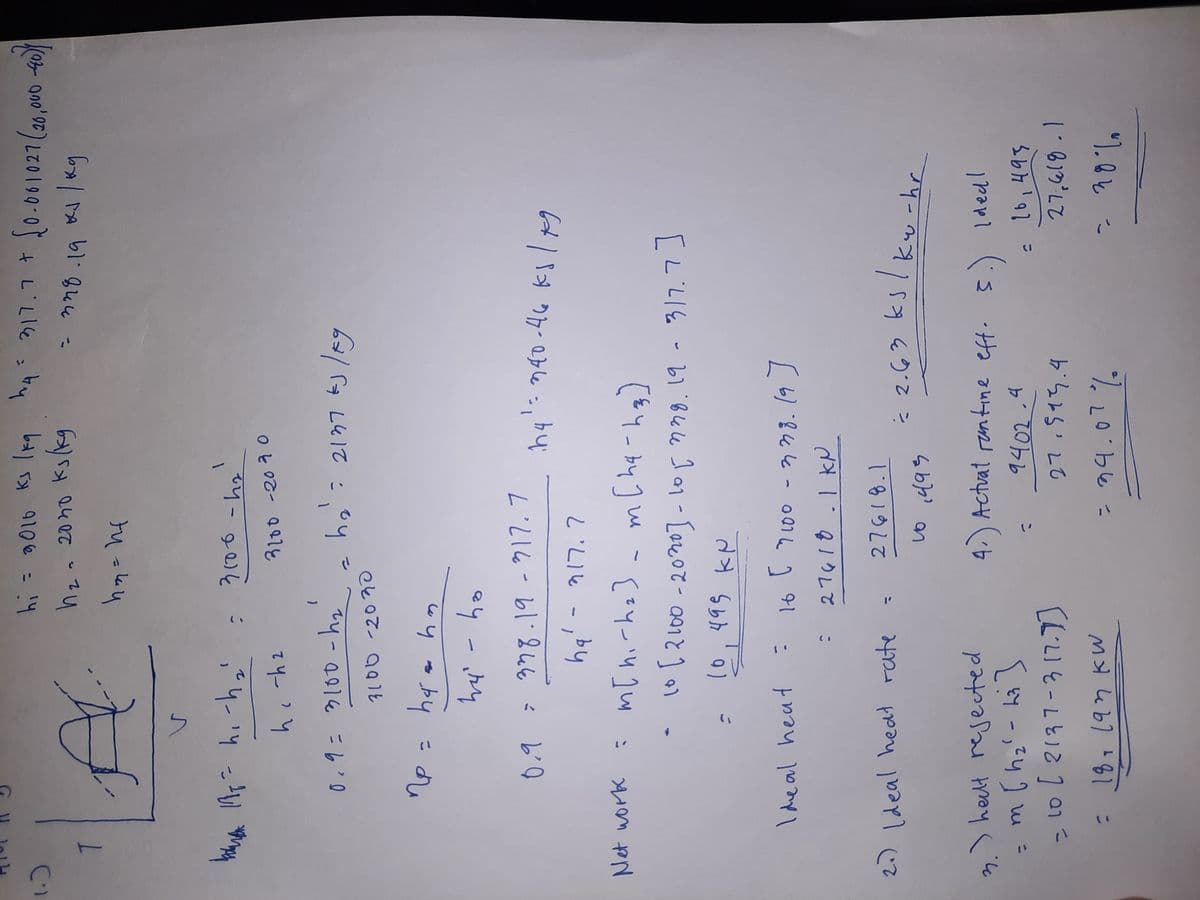 1.)
T
hi = 3016 ks/kg h4 = 317.7 + {0.001027(20,000-40)}
h2 = 2030 ks/kg = 338.19 kJ/kg
h3 = h4
s
ηT = h1-h2' = 3100-h2'
h1-h2 3100-2030
0.9 = 3100-h2' = h2' = 2137 kJ/kg
3100-2030
ηp = h4-h3
h4'-h3
0.9 = 338.19-317.7 h4' = 340.46 kJ/kg
h4'-317.7
Net work = m[h1-h2] - m[h4-h3]
10[3100-2030]-10[338.19-317.7]
= 10,495 kN
Ideal heat = 10[3100-338.19]
= 27618.1 kN
2.) Ideal heat rate = 27618.1 = 2.63 ks/kw-hr
10,495
3.) heat rejected
= m[h2'-h3]
= 10[2137-317.7]
= 18,193 kW
4.) Actual rantine eff.
= 9402.4
27,595.4
= 34.07%
5.) Ideal
= 10,495
27,618.1
= 38%